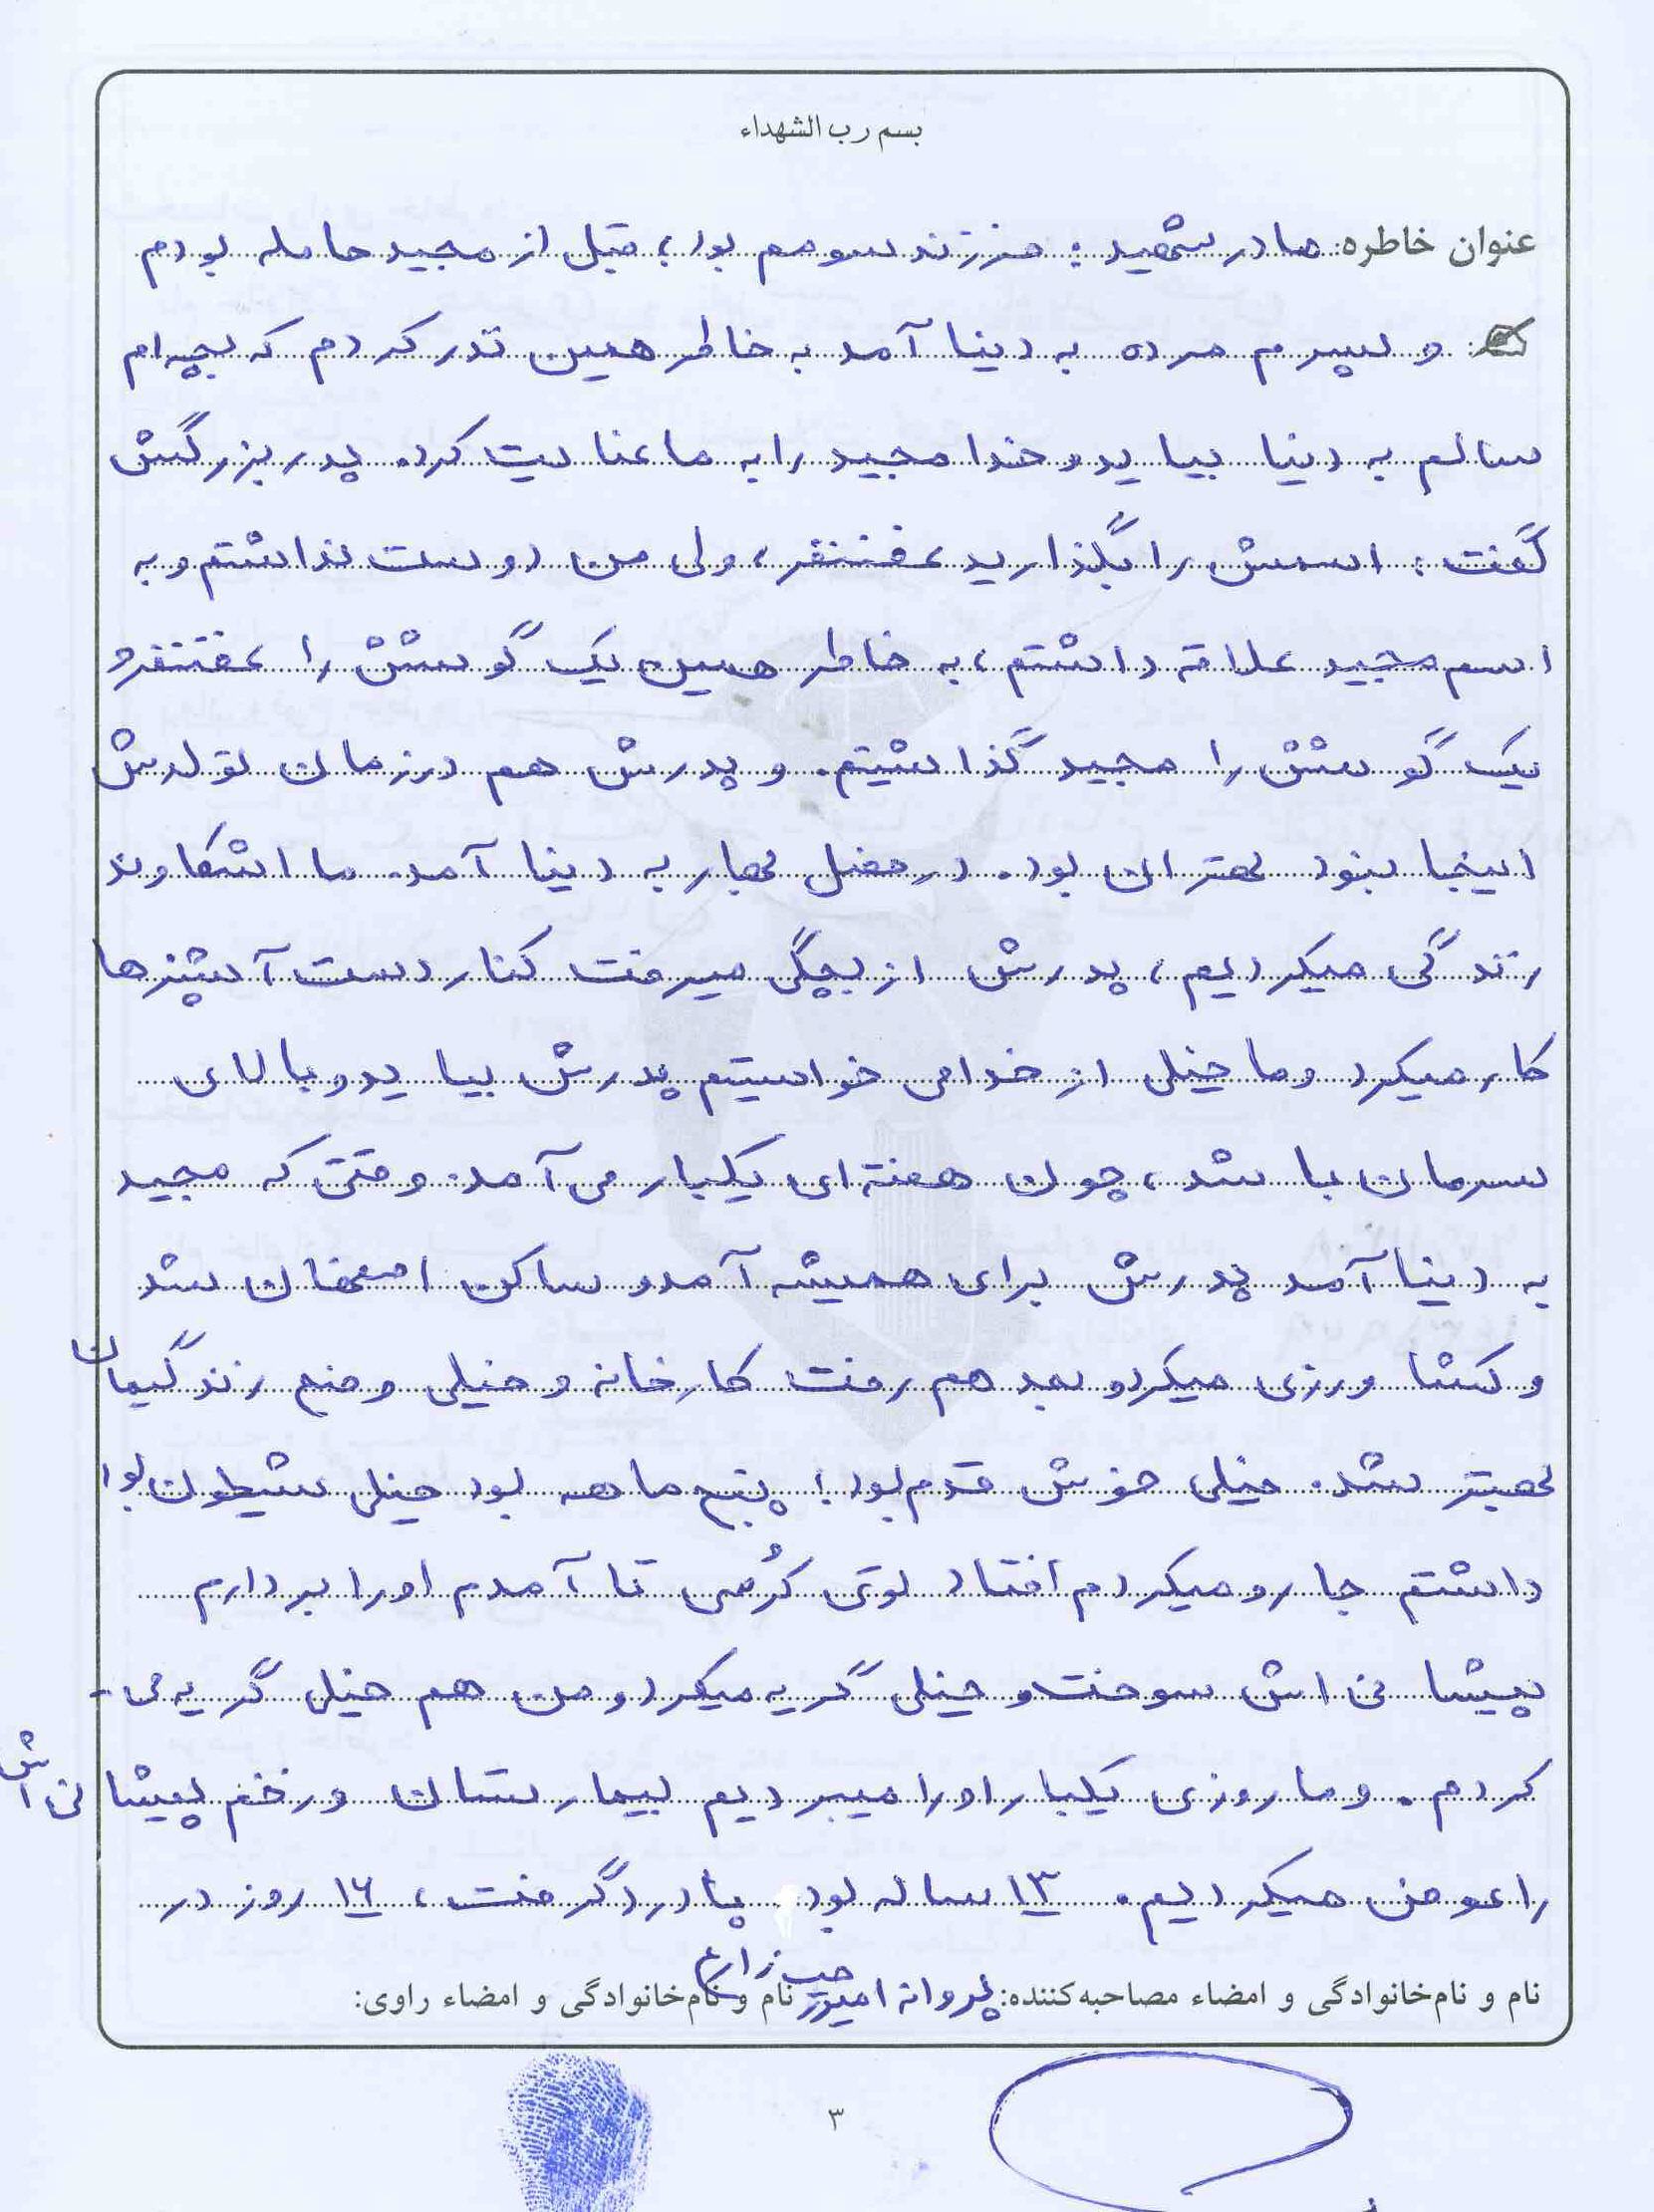 بسم رب الشهداء
عنوان خاطره: مادر شهید: فرزند سومم بود؛ قبل از مجید حامله بودم
و پسرم مرده به دنیا آمد به خاطر همین نذر کردم که بچه‌ام
سالم به دنیا بیاید و خدا مجید را به ما عنایت کرد. پدر بزرگش
گفت: اسمش را بگذارید غضنفر، ولی من دوست نداشتم و به
اسم مجید علاقه داشتم، به خاطر همین یک گوشش را غضنفر و
یک گوشش را مجید گذاشتیم. و پدرش هم در زمان تولدش
اینجا نبود تهران بود. در فصل بهار به دنیا آمد. ما اشکاوند
زندگی میکردیم، پدرش از بچگی میرفت کنار دست آشپزها
کار میکرد و ما خیلی از خدا می خواستیم پدرش بیاید و بالای
سرمان باشد، چون هفته‌ای یکبار می‌آمد. وقتی که مجید
به دنیا آمد پدرش برای همیشه آمد و ساکن اصفهان شد
و کشاورزی میکرد و بعد هم رفت کارخانه و خیلی وضع زندگیمان
بهتر شد. خیلی خوش قدم بود؛ پنج ماهه بود خیلی شیطون بود
داشتم جارو میکردم افتاد توی کُرسی تا آمدم او را بردارم
پیشانی اش سوخت و خیلی گریه میکرد و من هم خیلی گریه می-
کردم. و ما روزی یکبار او را میبردیم بیمارستان و زخم پیشانی اش
را عوض میکردیم. ۱۳ ساله بود پا درد گرفت، ۱۶ روز در
نام و نام‌خانوادگی و امضاء مصاحبه‌کننده: پروانه امیری نام و نام‌خانوادگی و امضاء راوی:
۳